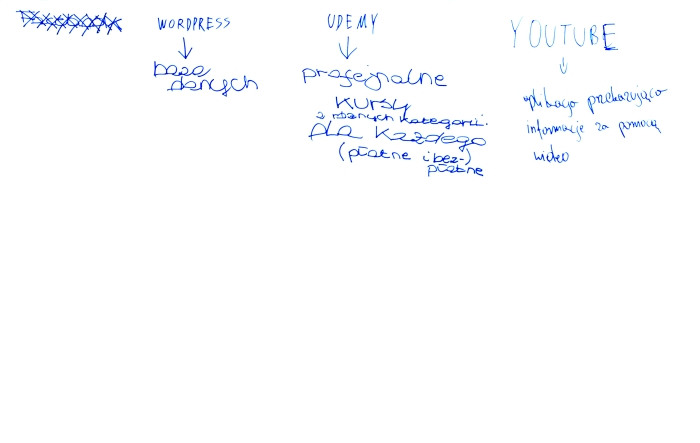 WORDPRESS
baza
danych
UDEMY
profejnalne
kursy
z różnych kategorii
dla każdego
(płatne i bez-)
płatne
YOUTUBE
aplikacja przekazująca
informacje za pomocą
wideo